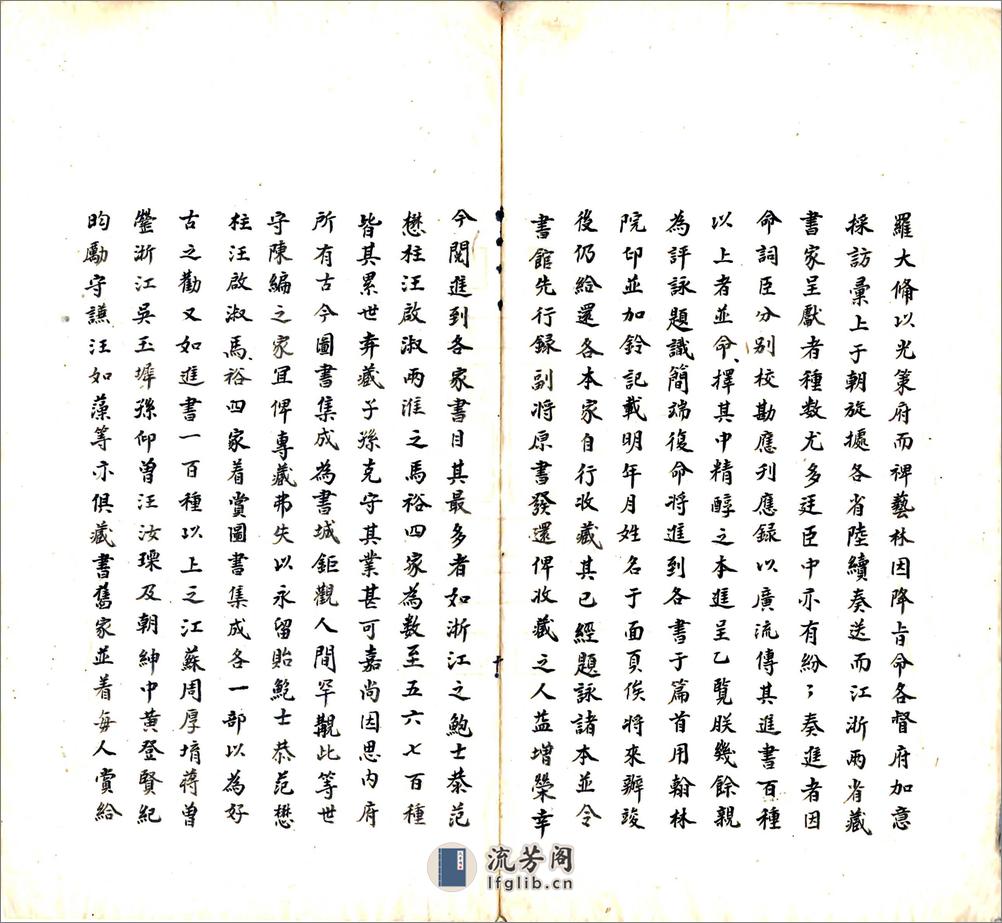 羅大備以光策府而裨藝林因降旨命各督府加意
採訪彙上于朝旋據各省陸續奏送而江浙兩省藏
書家呈獻者種数尤多廷臣中亦有紛〻奏進者因
命詞臣分别校勘應刋應録以廣流傳其進書百種
以上者並命擇其中精醇之本進呈乙覽朕幾餘親
為評詠題識簡端復命將進到各書于篇首用翰林
院印並加鈐記載明年月姓名于面頁俟將来辦竣
後仍給還各本家自行收藏其已經題詠諸本並令
書館先行録副將原書發還俾收藏之人益增榮幸
今閱進到各家書目其最多者如浙江之鮑士恭范
懋柱汪啟淑兩淮之馬裕四家為数至五六七百種
皆其累世弆藏子孫克守其業甚可嘉尚因思内府
所有古今圖書集成為書城鉅觀人間罕覯此等世
守陳編之家宜俾專藏弗失以永留貽鮑士恭范懋
柱汪啟淑馬裕四家着賞圖書集成各一部以為好
古之勸又如進書一百種以上之江蘇周厚堉蔣曾
瑩浙江吳玉墀孫仰曾汪汝瑮及朝紳中黄登賢紀
昀勵守謙汪如藻等亦俱藏書舊家並着每人賞給
十
流芳阁
lfglib.cn